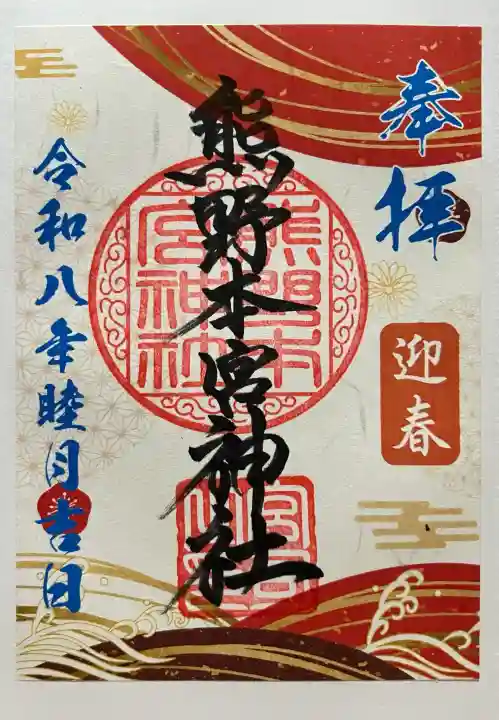 奉拝
迎春
熊野本宮神社
熊野本宮神社
令和八年睦月吉日